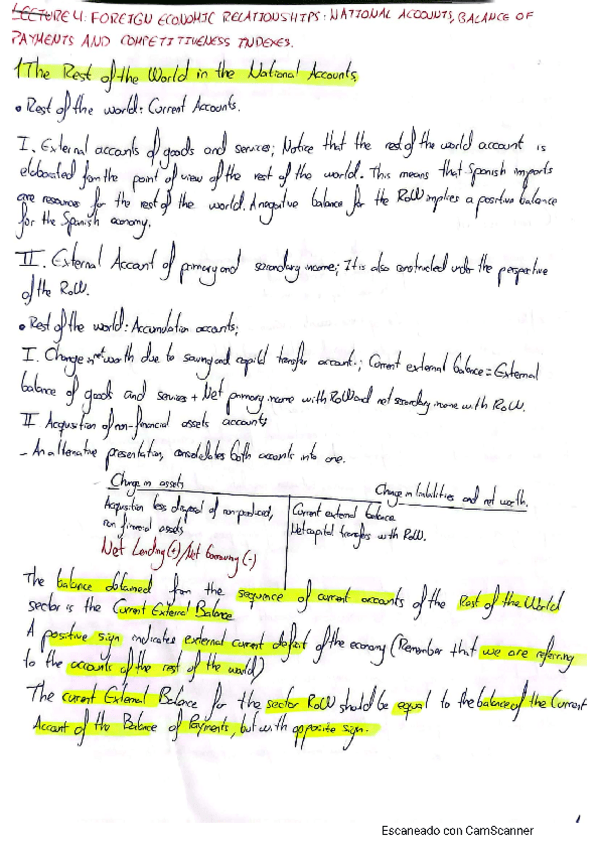 LECTURE 4: FOREIGN ECONOMIC RELATIONSHIPS: NATIONAL ACCOUNTS, BALANCE OF
PAYMENTS AND COMPETITIVENESS INDEXES.
1 The Rest of the World in the National Accounts
• Rest of the world: Current Accounts.
I. External accounts of goods and services; Notice that the rest of the world account is
elaborated from the point of view of the rest of the world. This means that Spanish imports
are resources for the rest of the world. A negative balance for the RoW implies a positive balance
for the Spanish economy.
II. External Account of primary and secondary income; It is also constructed under the perspective
of the RoW.
• Rest of the world: Accumulation accounts;
I. Change in net worth due to saving and capital transfer account.; Current external balance = External
balance of goods and services + Net primary income with RoW and net secondary income with RoW.
II Acquisition of non-financial assets accounts
- An alternative presentation, consolidates both accounts into one.
- Change in assets
Change in liabilities and net worth.
Acquisition less disposal of non-produced,
non financial assets
Net Lending (+) / Net borrowing (-)
Current external balance
Net capital transfers with RoW.
The balance obtained from the sequence of current accounts of the Rest of the World
sector is the Current External Balance
A positive sign indicates external current deficit of the economy (Remember that we are referring
to the accounts of the rest of the world)
The current External Balance for the sector RoW should be equal to the balance of the Current
Account of the Balance of Payments, but with opposite sign.
Escaneado con CamScanner